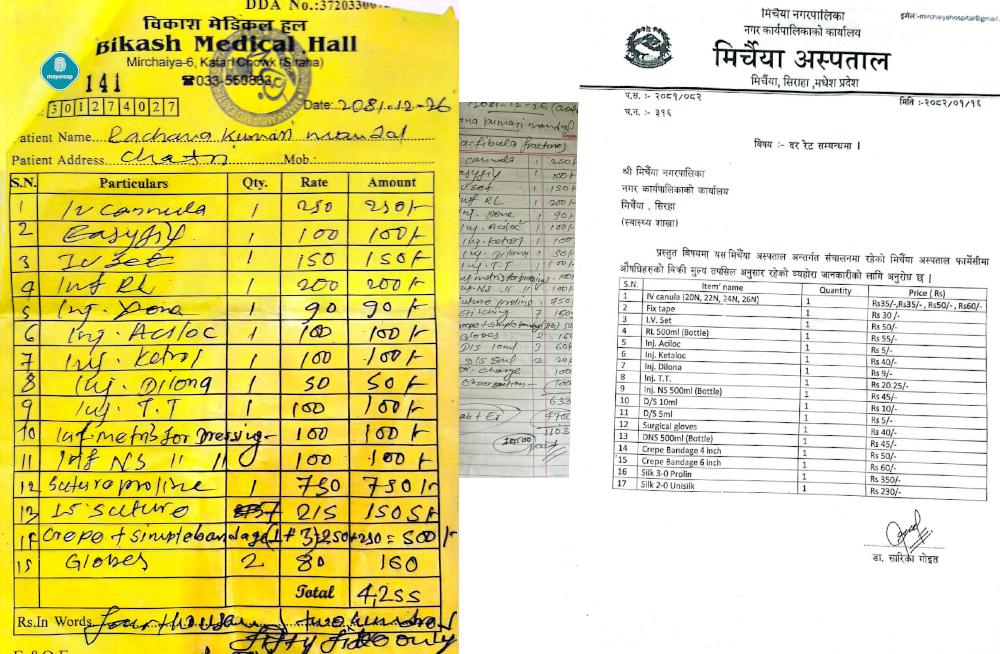 DDA No.:3720330
विकाश मेडिकल हल
Bikash Medical Hall
Mirchaiya-6, Katari Chowk (Siraha)
☎033-550883
mayorsap
141
301274027
Date: 2081-12-26
Patient Name Rachana Kumari mandal
Patient Address
Mob.:
S.N. Particulars Qty. Rate Amount
1 IV cannula 1 250 250/-
2 Easyfix 1 100 100/-
3 IV set 1 150 150/-
4 Inf RL 1 200 200/-
5 Inj. 1 90 90/-
6 Inj. Aciloc 1 100 100/-
7 Inj. Ketros 1 100 100/-
8 Inj. Dilona 1 50 50/-
9 Inj. T.T 1 100 100/-
10 Inf. metris for Dressing- 100 100/-
11 Inf NS " " 100 100/-
12 Suture proline 1 750 750/-
13 suture 7 215 1505/-
14 Crepe + simple bandage (1+3)=250+250 = 500/-
15 Globes 2 80 160
Total 4,255
Rs.In Words four thousand two hundred
fifty five only
2081-12-26
fibula fracture)
cannula 1 250/-
1 100/-
IV set 1 150/-
Inf RL 1 200/-
Inj. 1 90/-
Inj. Aciloc 1 100/-
Inj. Ketros 1 100
Inj. Dilona 1 50/-
Inj. T.T 1 100/-
Suture proline 1 750
Stitching 7
Gloves 2 160
D/S 10ml 3 60/-
D/S 5ml 2 20/-
charge 100
ईमेल:-mirchaiyahospital@gmail.
मिर्चैया नगरपालिका
नगर कार्यपालिकाको कार्यालय
मिर्चैया अस्पताल
मिर्चैया, सिराहा ,मधेश प्रदेश
प.स. :- २०८१/०८२
मिति :-२०८२/०१/१६
च.न. :- ३१६
विषय :- दर रेट सम्बन्धमा ।
श्री मिर्चैया नगरपालिका
नगर कार्यपालिकाको कार्यालय
मिर्चैया , सिरहा
(स्वास्थ्य शाखा)
प्रस्तुत बिषयमा यस मिर्चैया अस्पताल अन्तर्गत संचालनमा रहेको मिर्चैया अस्पताल फार्मेसीमा
औषधिहरुको बिक्री मुल्य तपसिल अनुसार रहेको व्यहोरा जानकारीको लागि अनुरोध छ ।
S.N. Item' name Quantity Price ( Rs)
1 IV canula (20N, 22N, 24N, 26N) 1 Rs35/-,Rs35/- , Rs50/-, Rs60/-
2 Fix tape 1 Rs 30 /-
3 I.V. Set 1 Rs 50/-
4 RL 500ml (Bottle) 1 Rs 55/-
5 Inj. Aciloc 1 Rs 5/-
6 Inj. Ketaloc 1 Rs 40/-
7 Inj. Dilona 1 Rs 9/-
8 Inj. T.T. 1 Rs 20.25/-
9 Inj. NS 500ml (Bottle) 1 Rs 45/-
10 D/S 10ml 1 Rs 10/-
11 D/S 5ml 1 Rs 5/-
12 Surgical gloves 1 Rs 40/-
13 DNS 500ml (Bottle) 1 Rs 45/-
14 Crepe Bandage 4 inch 1 Rs 50/-
15 Crepe Bandage 6 inch 1 Rs 60/-
16 Silk 3-0 Prolin 1 Rs 350/-
17 Silk 2-0 Unisilk 1 Rs 230/-
डा. सारिका गोइत